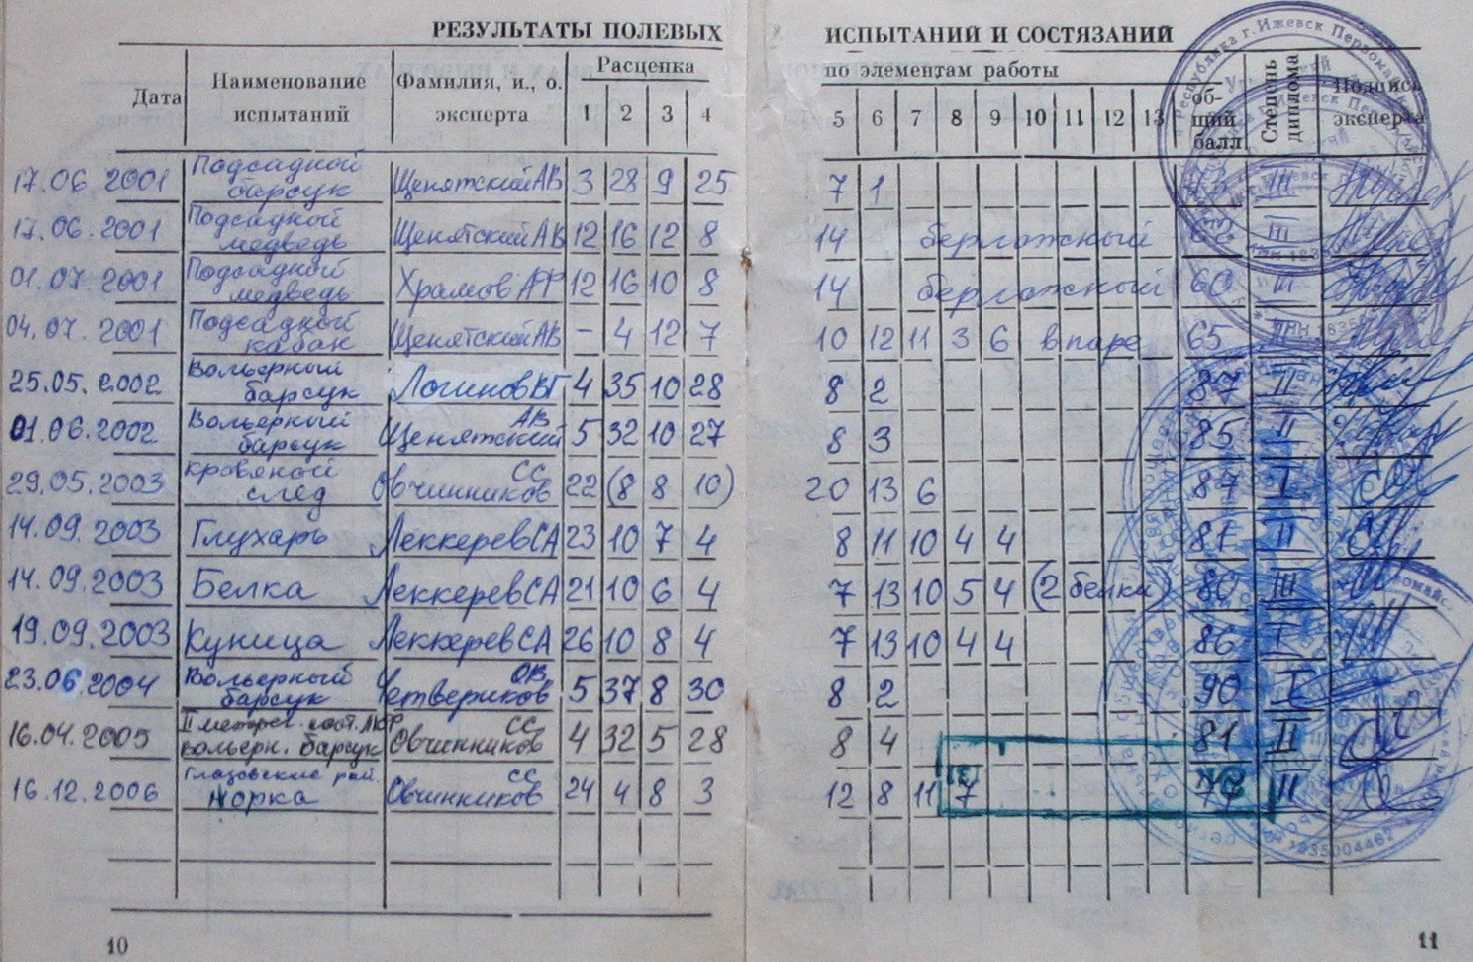 РЕЗУЛЬТАТЫ ПОЛЕВЫХ ИСПЫТАНИЙ И СОСТЯЗАНИЙ
Дата Наименование испытаний Фамилия, и., о. эксперта Расценка по элементам работы общий балл Степень диплома Подпись эксперта
1 2 3 4 5 6 7 8 9 10 11 12 13
17.06 2001 Подсадной барсук Щенятский АВ 3 28 9 25 7 1 III
17.06.2001 Подсадной медведь Щенятский АВ 12 16 12 8 14 берложный 62 III
01.07.2001 Подсадной медведь Храмов АФ 12 16 10 8 14 берложный 60
04.07.2001 Подсадной кабан Щенятский АВ – 4 12 7 10 12 11 3 6 в паре 65
25.05.2002 Вольерный барсук Логинов ВГ 4 35 10 28 8 2 87 II
01.06.2002 Вольерный барсук Щенятский АВ 5 32 10 27 8 3 85 II
29.05.2003 кровяной след Овчинников СС 22 (8 8 10) 20 13 6 87 I
14.09.2003 Глухарь Леккерев СА 23 10 7 4 8 11 10 4 4 81 II
14.09.2003 Белка Леккерев СА 21 10 6 4 7 13 10 5 4 (2 белки) 80 III
19.09.2003 Куница Леккерев СА 26 10 8 4 7 13 10 4 4 86 I
23.06.2004 Вольерный барсук Четвериков ОВ 5 37 8 30 8 2 90 I
16.04.2005 II вольерн. барсук Овчинников СС 4 32 5 28 8 4 81 II
16.12.2006 Глазовские норка Овчинников СС 24 4 8 3 12 8 11 7 77 II
10 11